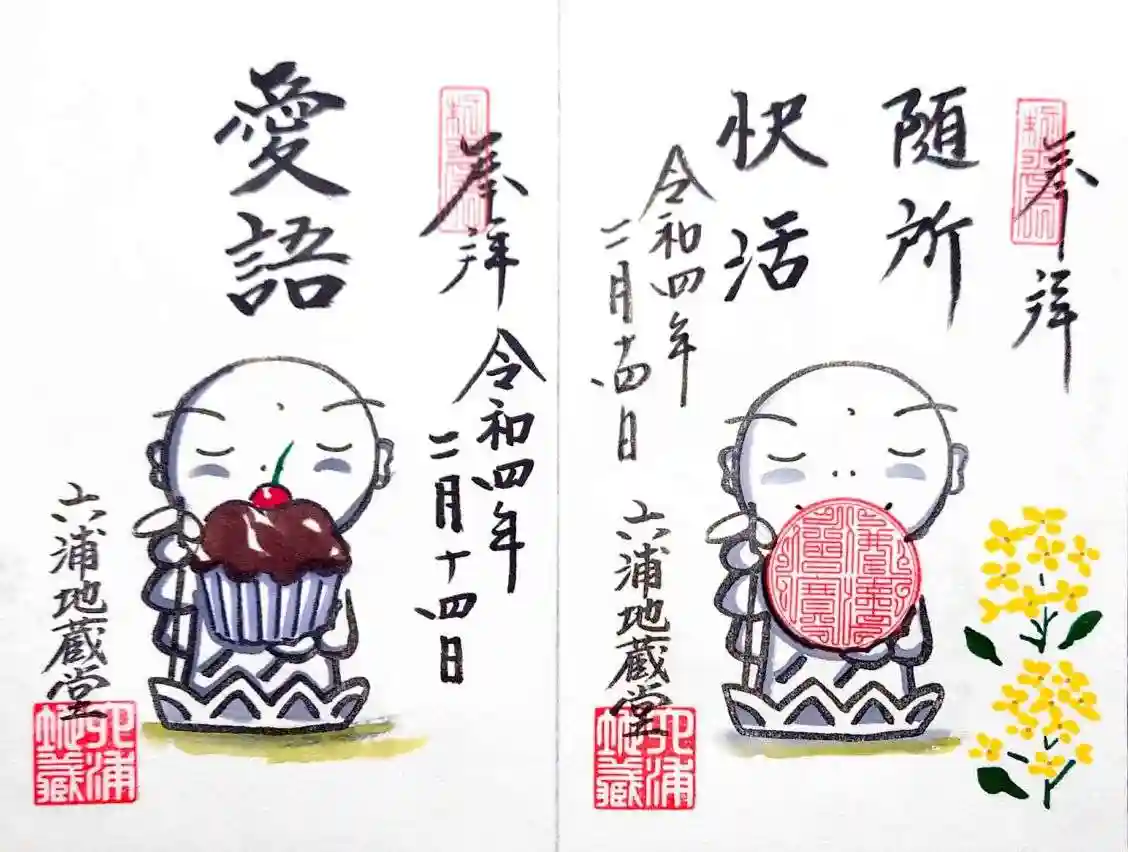 奉拝
随所
快活
令和四年
二月十四日
六浦地蔵堂
六浦
地蔵
奉拝
令和四年
二月十四日
愛語
六浦地蔵堂
六浦
地蔵